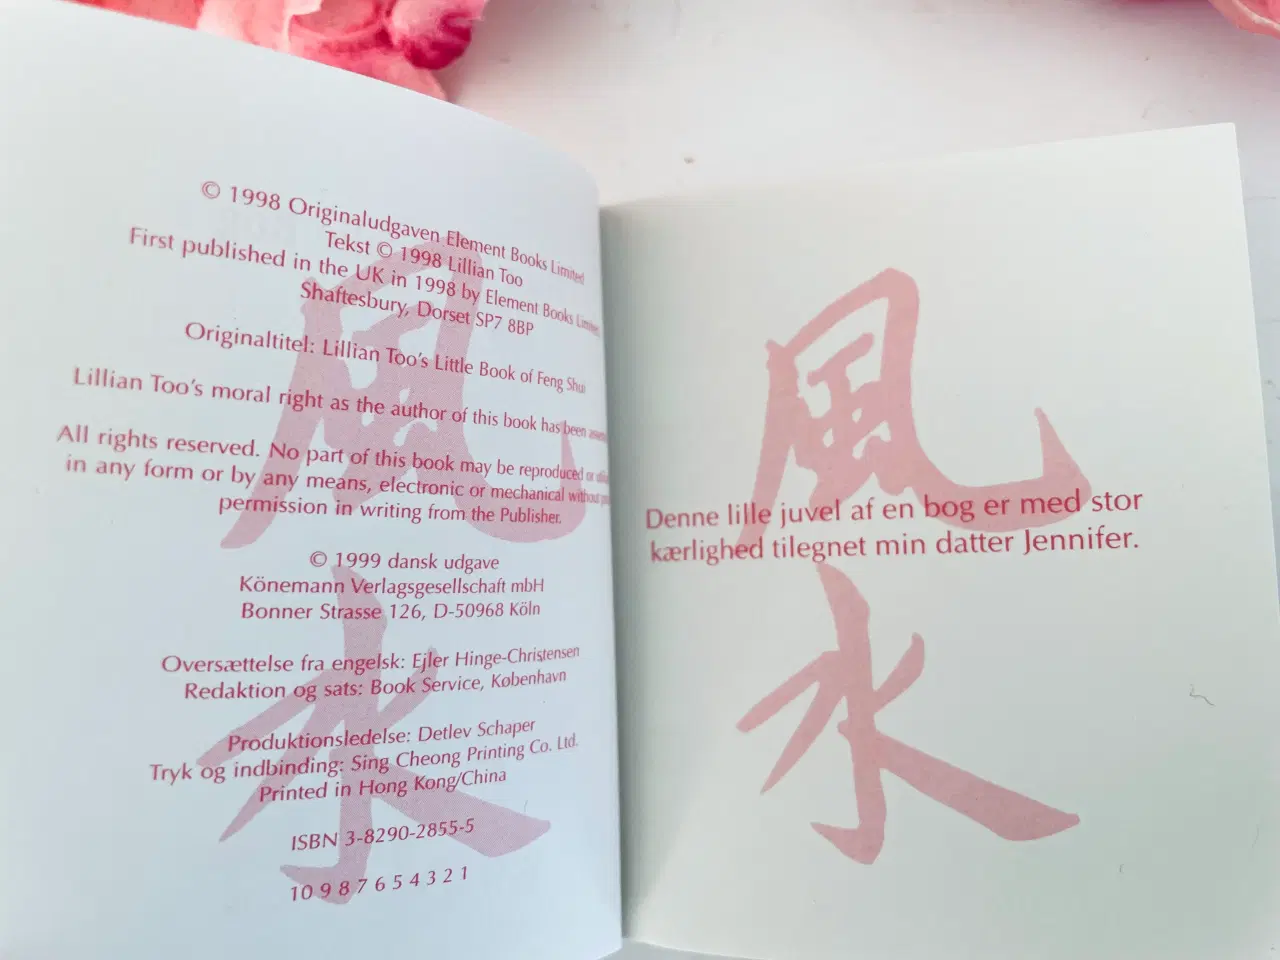 © 1998 Originaludgaven Element Books Limited
Tekst © 1998 Lillian Too
First published in the UK in 1998 by Element Books Limited,
Shaftesbury, Dorset SP7 8BP
Originaltitel: Lillian Too's Little Book of Feng Shui
Lillian Too's moral right as the author of this book has been
All rights reserved. No part of this book may be reproduced or
in any form or by any means, electronic or mechanical without
permission in writing from the Publisher.
© 1999 dansk udgave
Könemann Verlagsgesellschaft mbH
Bonner Strasse 126, D-50968 Köln
Oversættelse fra engelsk: Ejler Hinge-Christensen
Redaktion og sats: Book Service, København
Produktionsledelse: Detlev Schaper
Tryk og indbinding: Sing Cheong Printing Co. Ltd.
Printed in Hong Kong/China
ISBN 3-8290-2855-5
10 9 8 7 6 5 4 3 2 1
風
水
Denne lille juvel af en bog er med stor
kærlighed tilegnet min datter Jennifer.
風
水